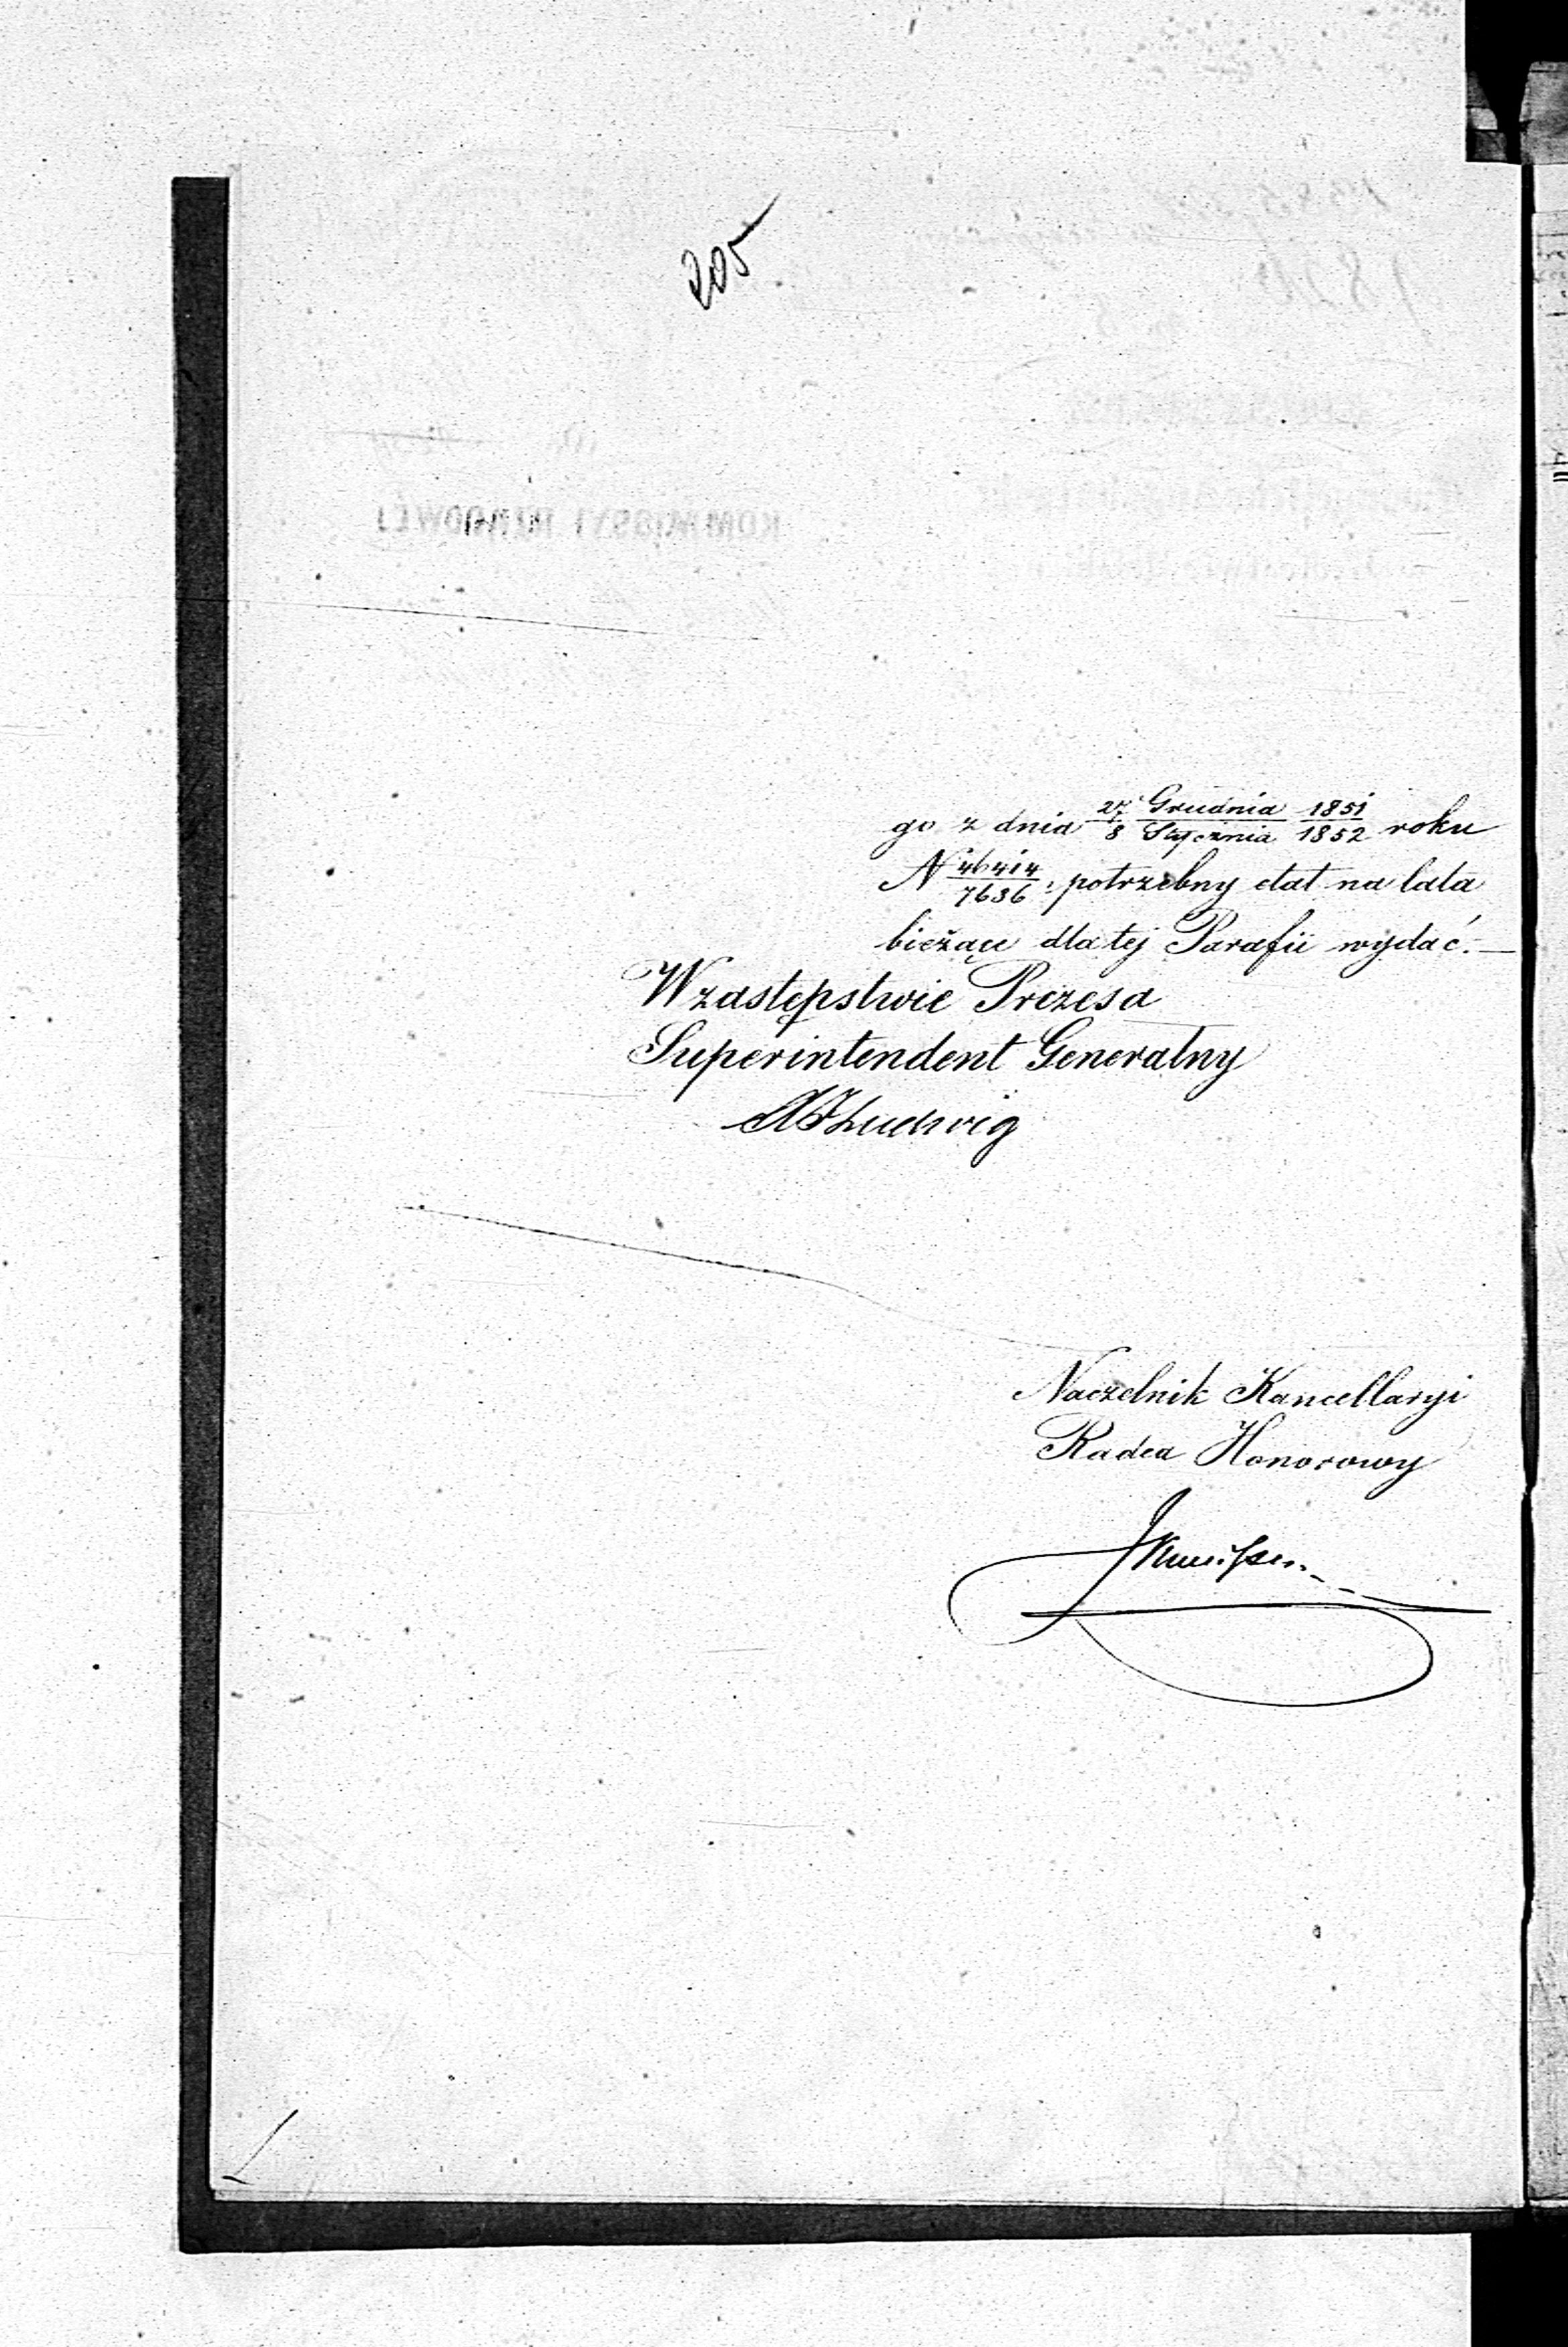 205
go z dnia 27 Grudnia 1851 / 8 Stycznia 1852 roku
N 46414/7636, potrzebny etat na lata
bieżące dla tej Parafii wydać.—
W zastępstwie Prezesa
Superintendent Generalny
Ludwig
Naczelnik Kancellaryi
Radca Honorowy